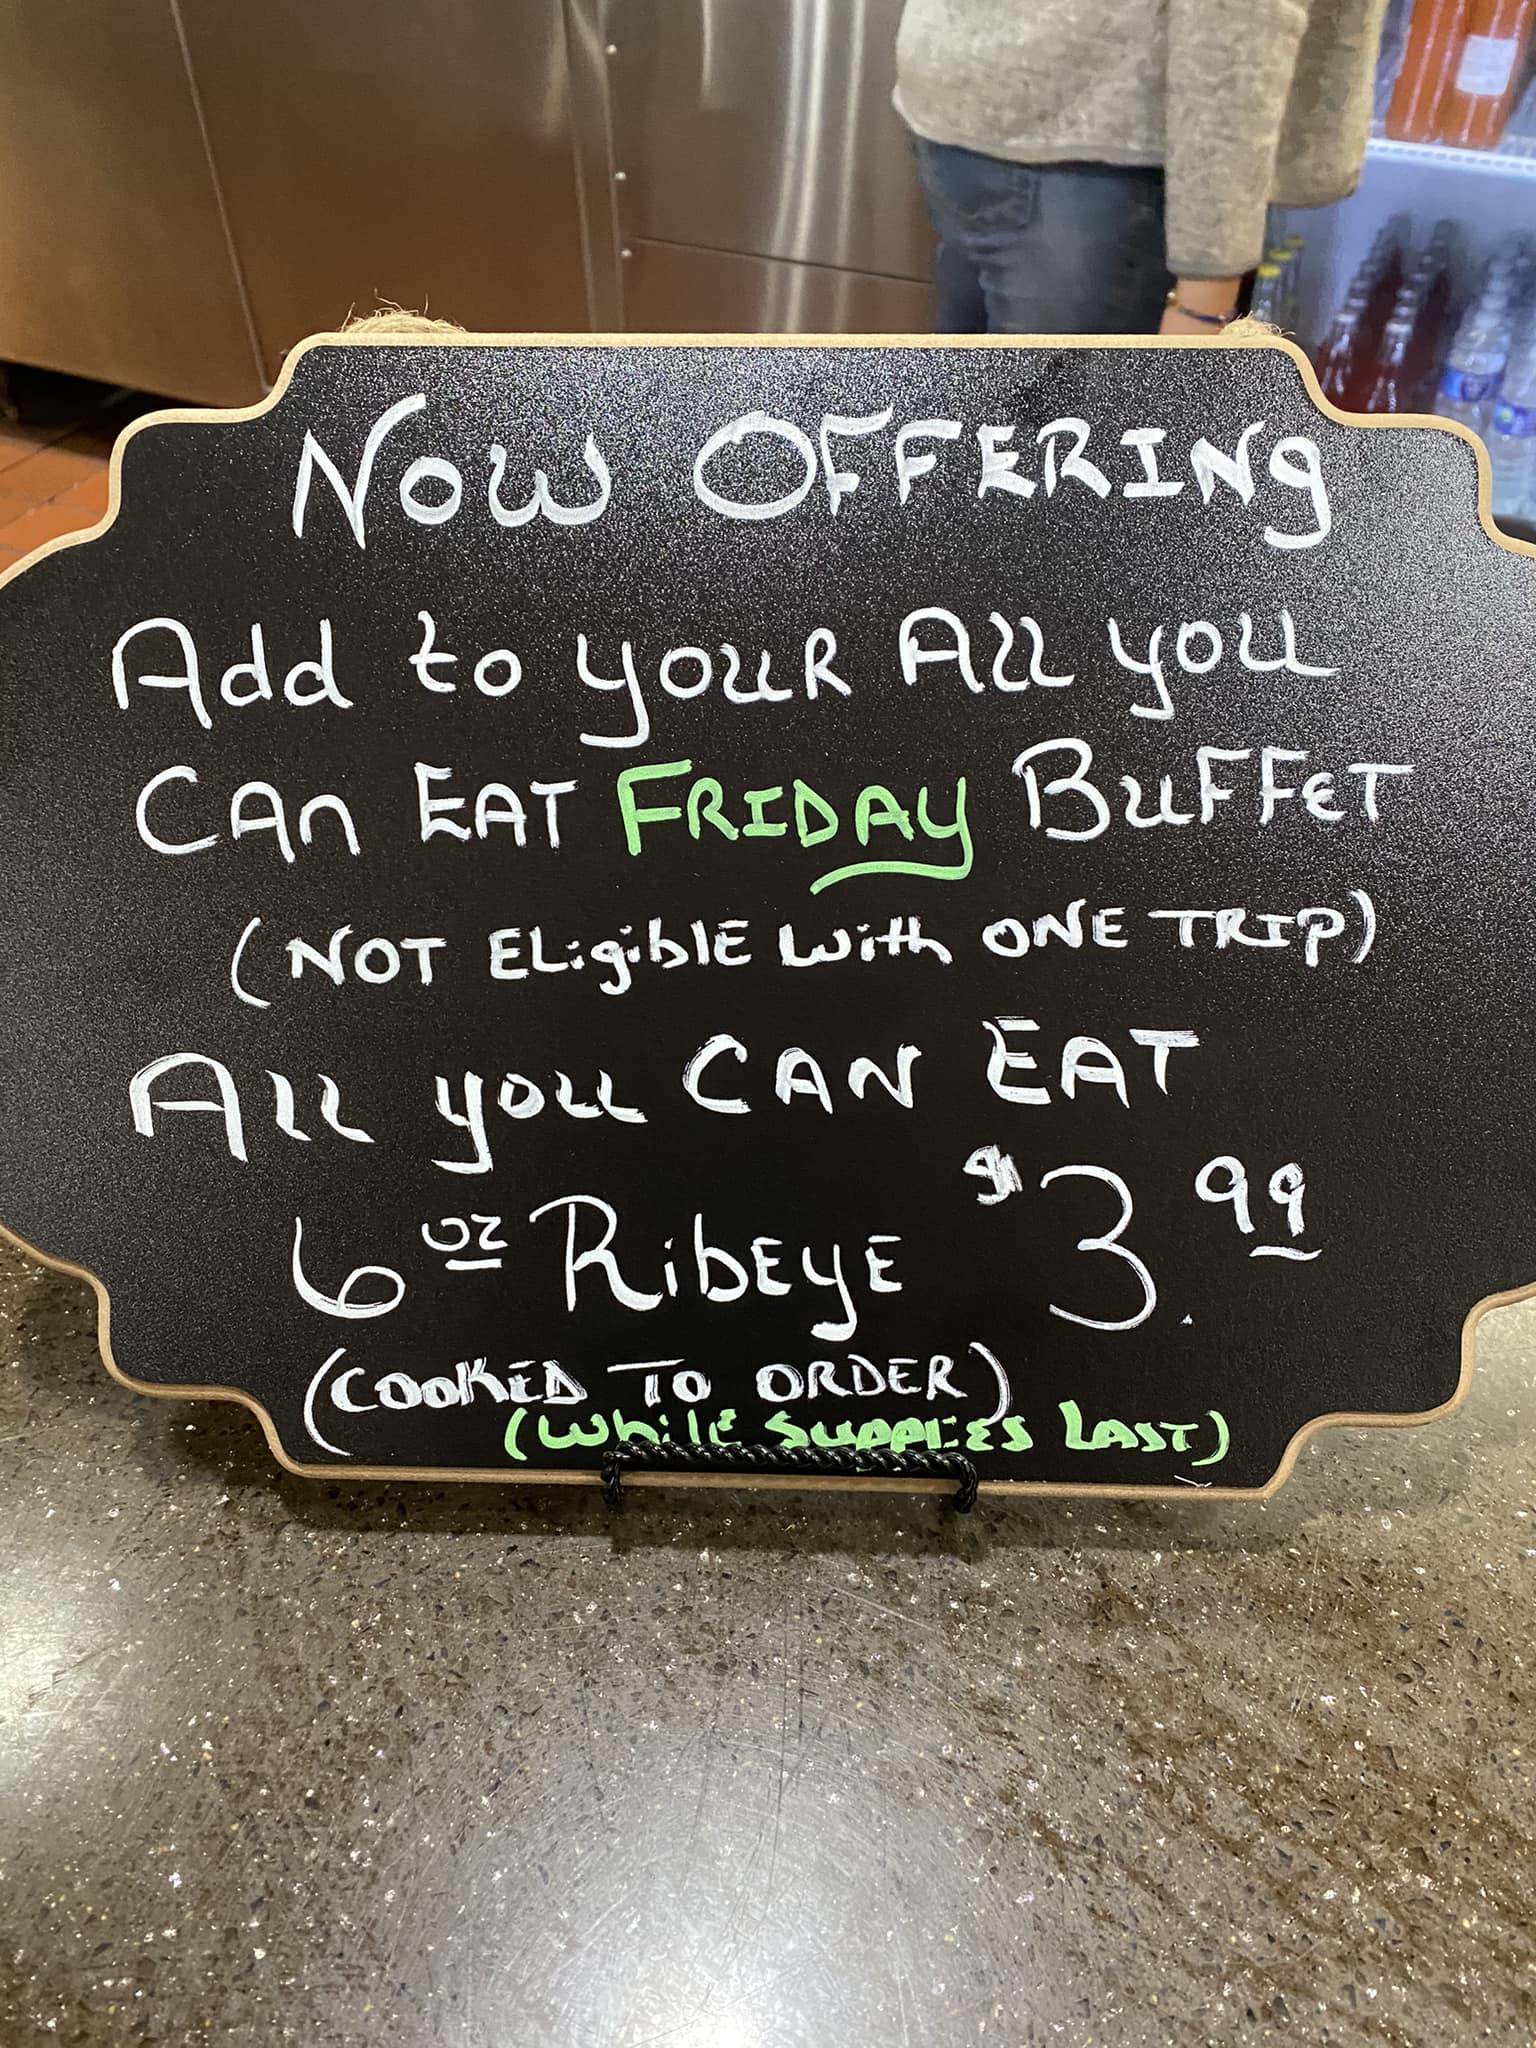 Now OFFERING
Add to your All you
Can EAT FRIDAY BuFFET
(NOT ELigiblE with ONE TRIP)
All you CAN EAT
6 oz RibEyE $3.99
(COOKED TO ORDER)
(While Supplies Last)